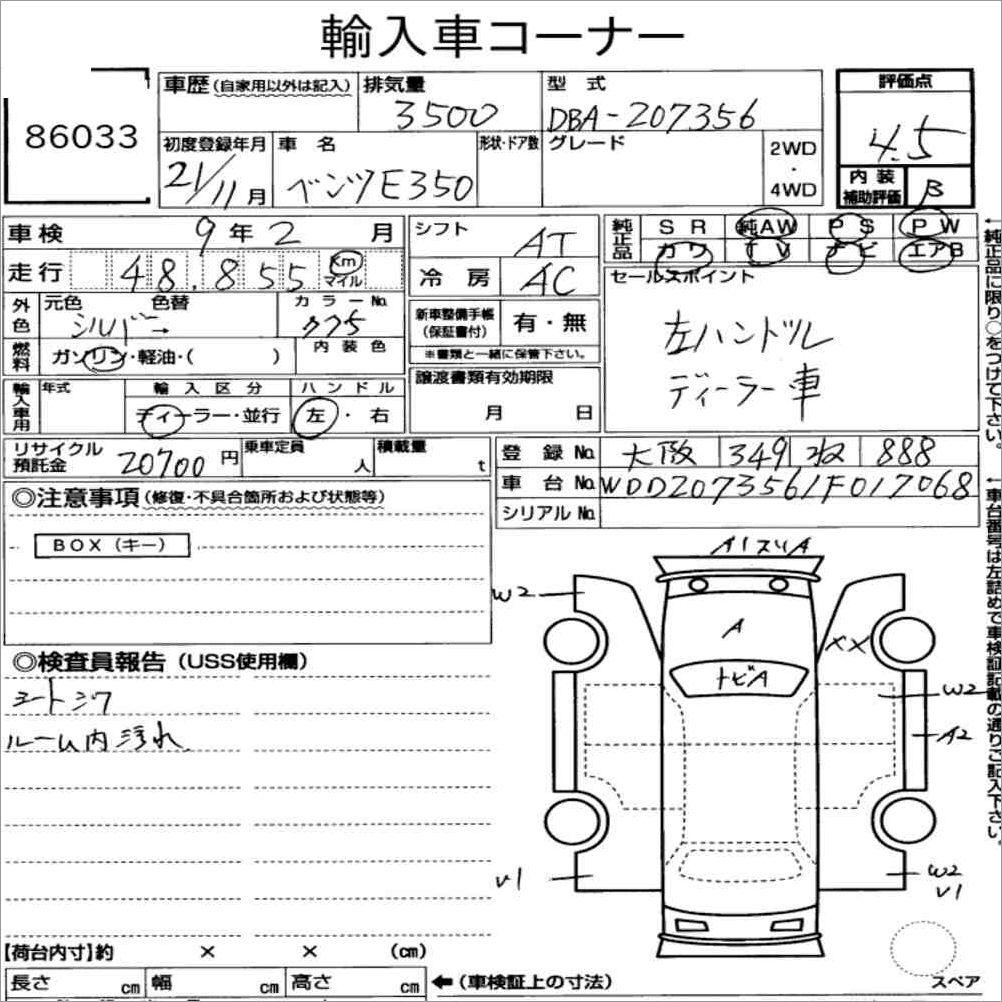 輸入車コーナー
86033
車歴(自家用以外は記入) 排気量 型式
3500 DBA-207356
評価点
4.5
初度登録年月 車名 形状・ドア数 グレード 2WD・4WD
21/11月 ベンツE350
内装補助評価 B
車検 9年2月
走行 48.855 Km マイル
シフト AT
冷房 AC
純正品 SR 純AW PS PW
カワ TV ナビ エアB
外色 元色 色替 カラーNo.
シルバー→ 775
燃料 ガソリン・軽油・( ) 内装色
新車整備手帳(保証書付) 有・無
※書類と一緒に保管下さい。
セールスポイント
左ハンドル
ディーラー車
輸入車用 年式 輸入区分 ハンドル
ディーラー・並行 左・右
譲渡書類有効期限
月 日
リサイクル預託金 20700円 乗車定員 人 積載量 t
登録No. 大阪 349 888
車台No. WDD2073561F017068
シリアルNo.
◎注意事項(修復・不具合箇所および状態等)
BOX(キー)
◎検査員報告(USS使用欄)
シートシワ
ルーム内汚れ
A1スリA
W2
A
XX
トビA
W2
A2
V1
W2
V1
【荷台内寸】約 × × (cm)
長さ cm 幅 cm 高さ cm ←(車検証上の寸法)
スペア
←純正品に限り○をつけて下さい。
←車台番号は左詰めで車検証記載の通りご記入下さい。